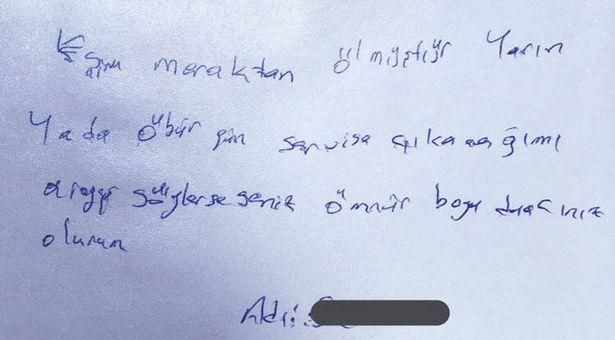 Eşim meraktan ölmüştür Yarın
Ya da öbür gün servise çıkacağımı
söylerseseniz ömür boyu duacınız
olurum
Adı: